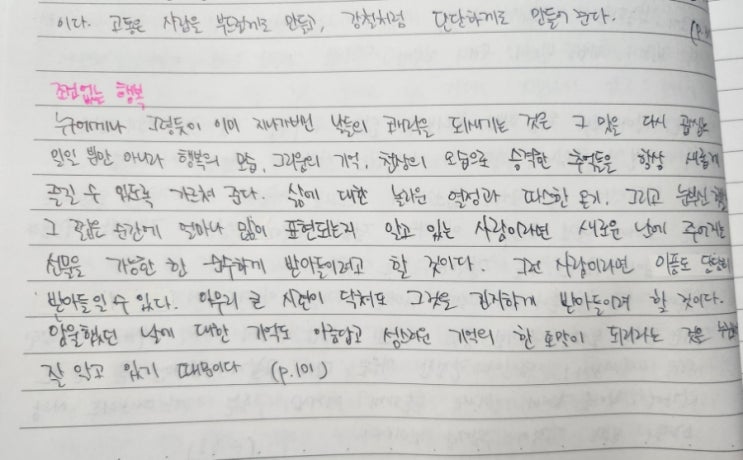 이다. 고통은 사람을 부드럽게도 만들고, 강철처럼 단단하게도 만들어 준다.
조건없는 행복
누구에게나 그렇듯이 이미 지나가버린 날들의 쾌락을 되새기는 것은 그 일을 다시 곱씹는
일일 뿐만 아니라 행복의 모습, 그리움의 기억, 천상의 모습으로 승격한 추억들을 항상 새롭게
즐길 수 있도록 가르쳐 준다. 삶에 대한 놀라운 열정과 따스한 온기, 그리고 눈부신
그 짧은 순간에 얼마나 많이 표현되는지 알고 있는 사람이라면 새로운 날에 주어지는
선물을 가능한 한 순수하게 받아들이려고 할 것이다. 그런 사람이라면 아픔도 단단히
받아들일 수 있다. 아무리 큰 시련이 닥쳐도 그것을 진지하게 받아들이려 할 것이다.
암울했던 날에 대한 기억도 아름답고 성스러운 기억의 한 토막이 되리라는 것을
잘 알고 있기 때문이다 (p.101)